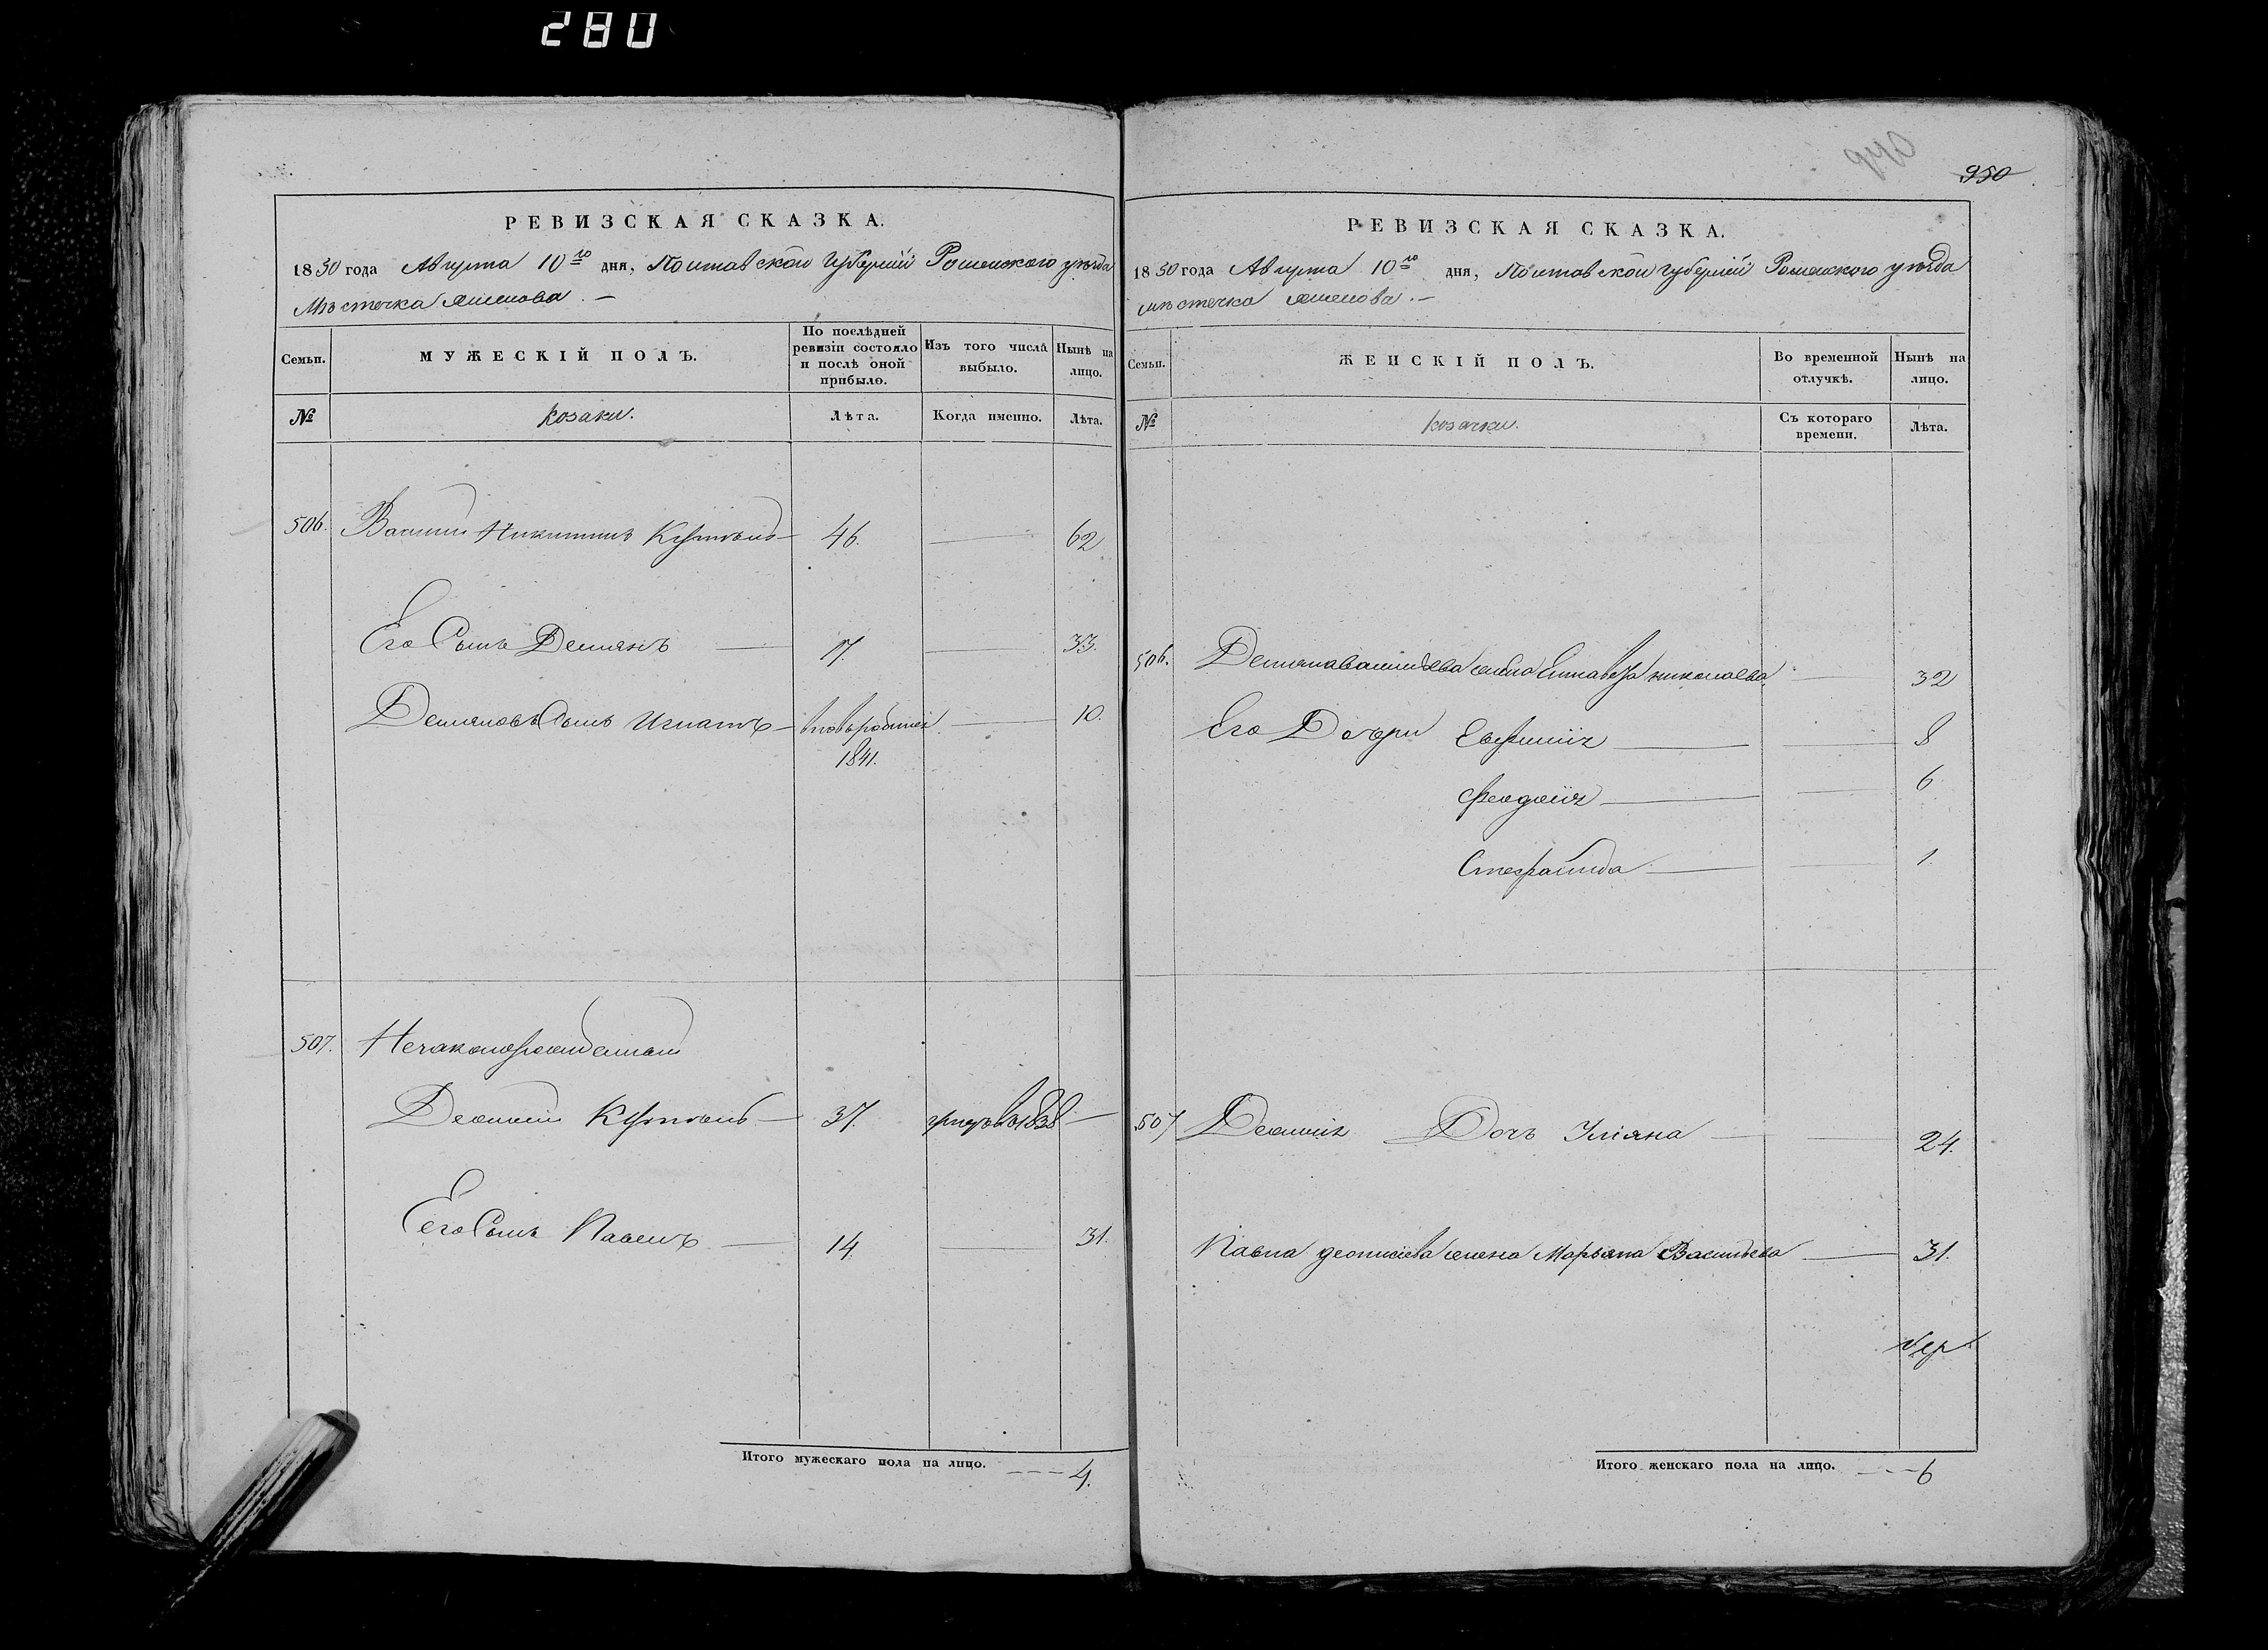 280
940
950
РЕВИЗСКАЯ СКАЗКА.
1850 года Августа 10го дня, Полтавской Губернии Роменского уезда
Местечка
Семьи.
МУЖЕСКІЙ ПОЛЪ.
По послѣдней ревизіи состояло и послѣ оной прибыло.
Изъ того числа выбыло.
Нынѣ на лицо.
№
козаки.
Лѣта.
Когда именно.
Лѣта.
506. Василий Никитинъ 46. 62
Его Сынъ Демянъ 17. 33.
Демяновъ Сынъ Игнатъ вновьрожден 10.
1841.
507. Незаконорожденный
Деонисий 37. 1838
Его Сынъ Павелъ 14 31.
Итого мужескаго пола на лицо. 4.
РЕВИЗСКАЯ СКАЗКА.
1850 года Августа 10го дня, Полтавской губернии Роменского уезда
местечка
Семьи.
ЖЕНСКІЙ ПОЛЪ.
Во временной отлучкѣ.
Нынѣ на лицо.
№
козачки.
Съ котораго времени.
Лѣта.
506. Демяна васильева жена Елисавета николаева 32
Его Дочери Евфимия 8
Феодосия 6
Степанида 1.
507 Деонисия Дочь Улияна 24.
Павла деонисиева жена Марьяна Васильева 31.
Итого женскаго пола на лицо. 6